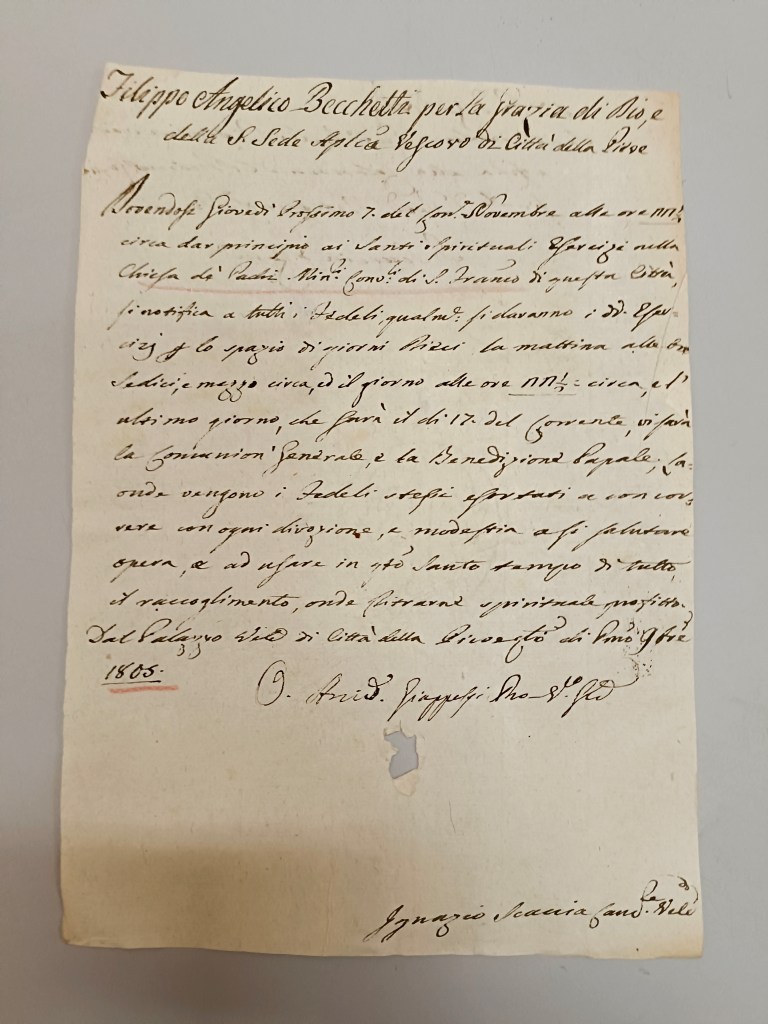 Filippo Angelico Becchetti per la Grazia di Dio, e
della S. Sede Aplca Vescovo di Città della Pieve
Dovendosi Giovedì Prossimo 7. del Corr. Novembre alle ore
circa dar principio ai Santi Spirituali Esercizi nella
Chiesa de Padri Min:ri Conv:li di S. Franco di questa Città,
si notifica a tutti i Fedeli, qualm: si daranno i dd. Eser-
cizj p lo spazio di giorni Dieci la mattina alle Ore
Sedici, e mezzo circa, ed il giorno alle ore circa, e l'
ultimo giorno, che sarà il dì 17. del Corrente, vi sarà
la Comunion Generale, e la Benedizione Papale; La-
onde vengono i Fedeli stessi esortati a concor-
rere con ogni divozione, e modestia a sì salutare
opera, e ad usare in qto Santo tempo di tutto
il raccoglimento, onde ritrarne spirituale profitto.
Dal Palazzo Vele di Città della Pieve qto dì Pmo 9bre
1805.
Giappessi Pro-
Ignazio Scaccia Canc.le Vele